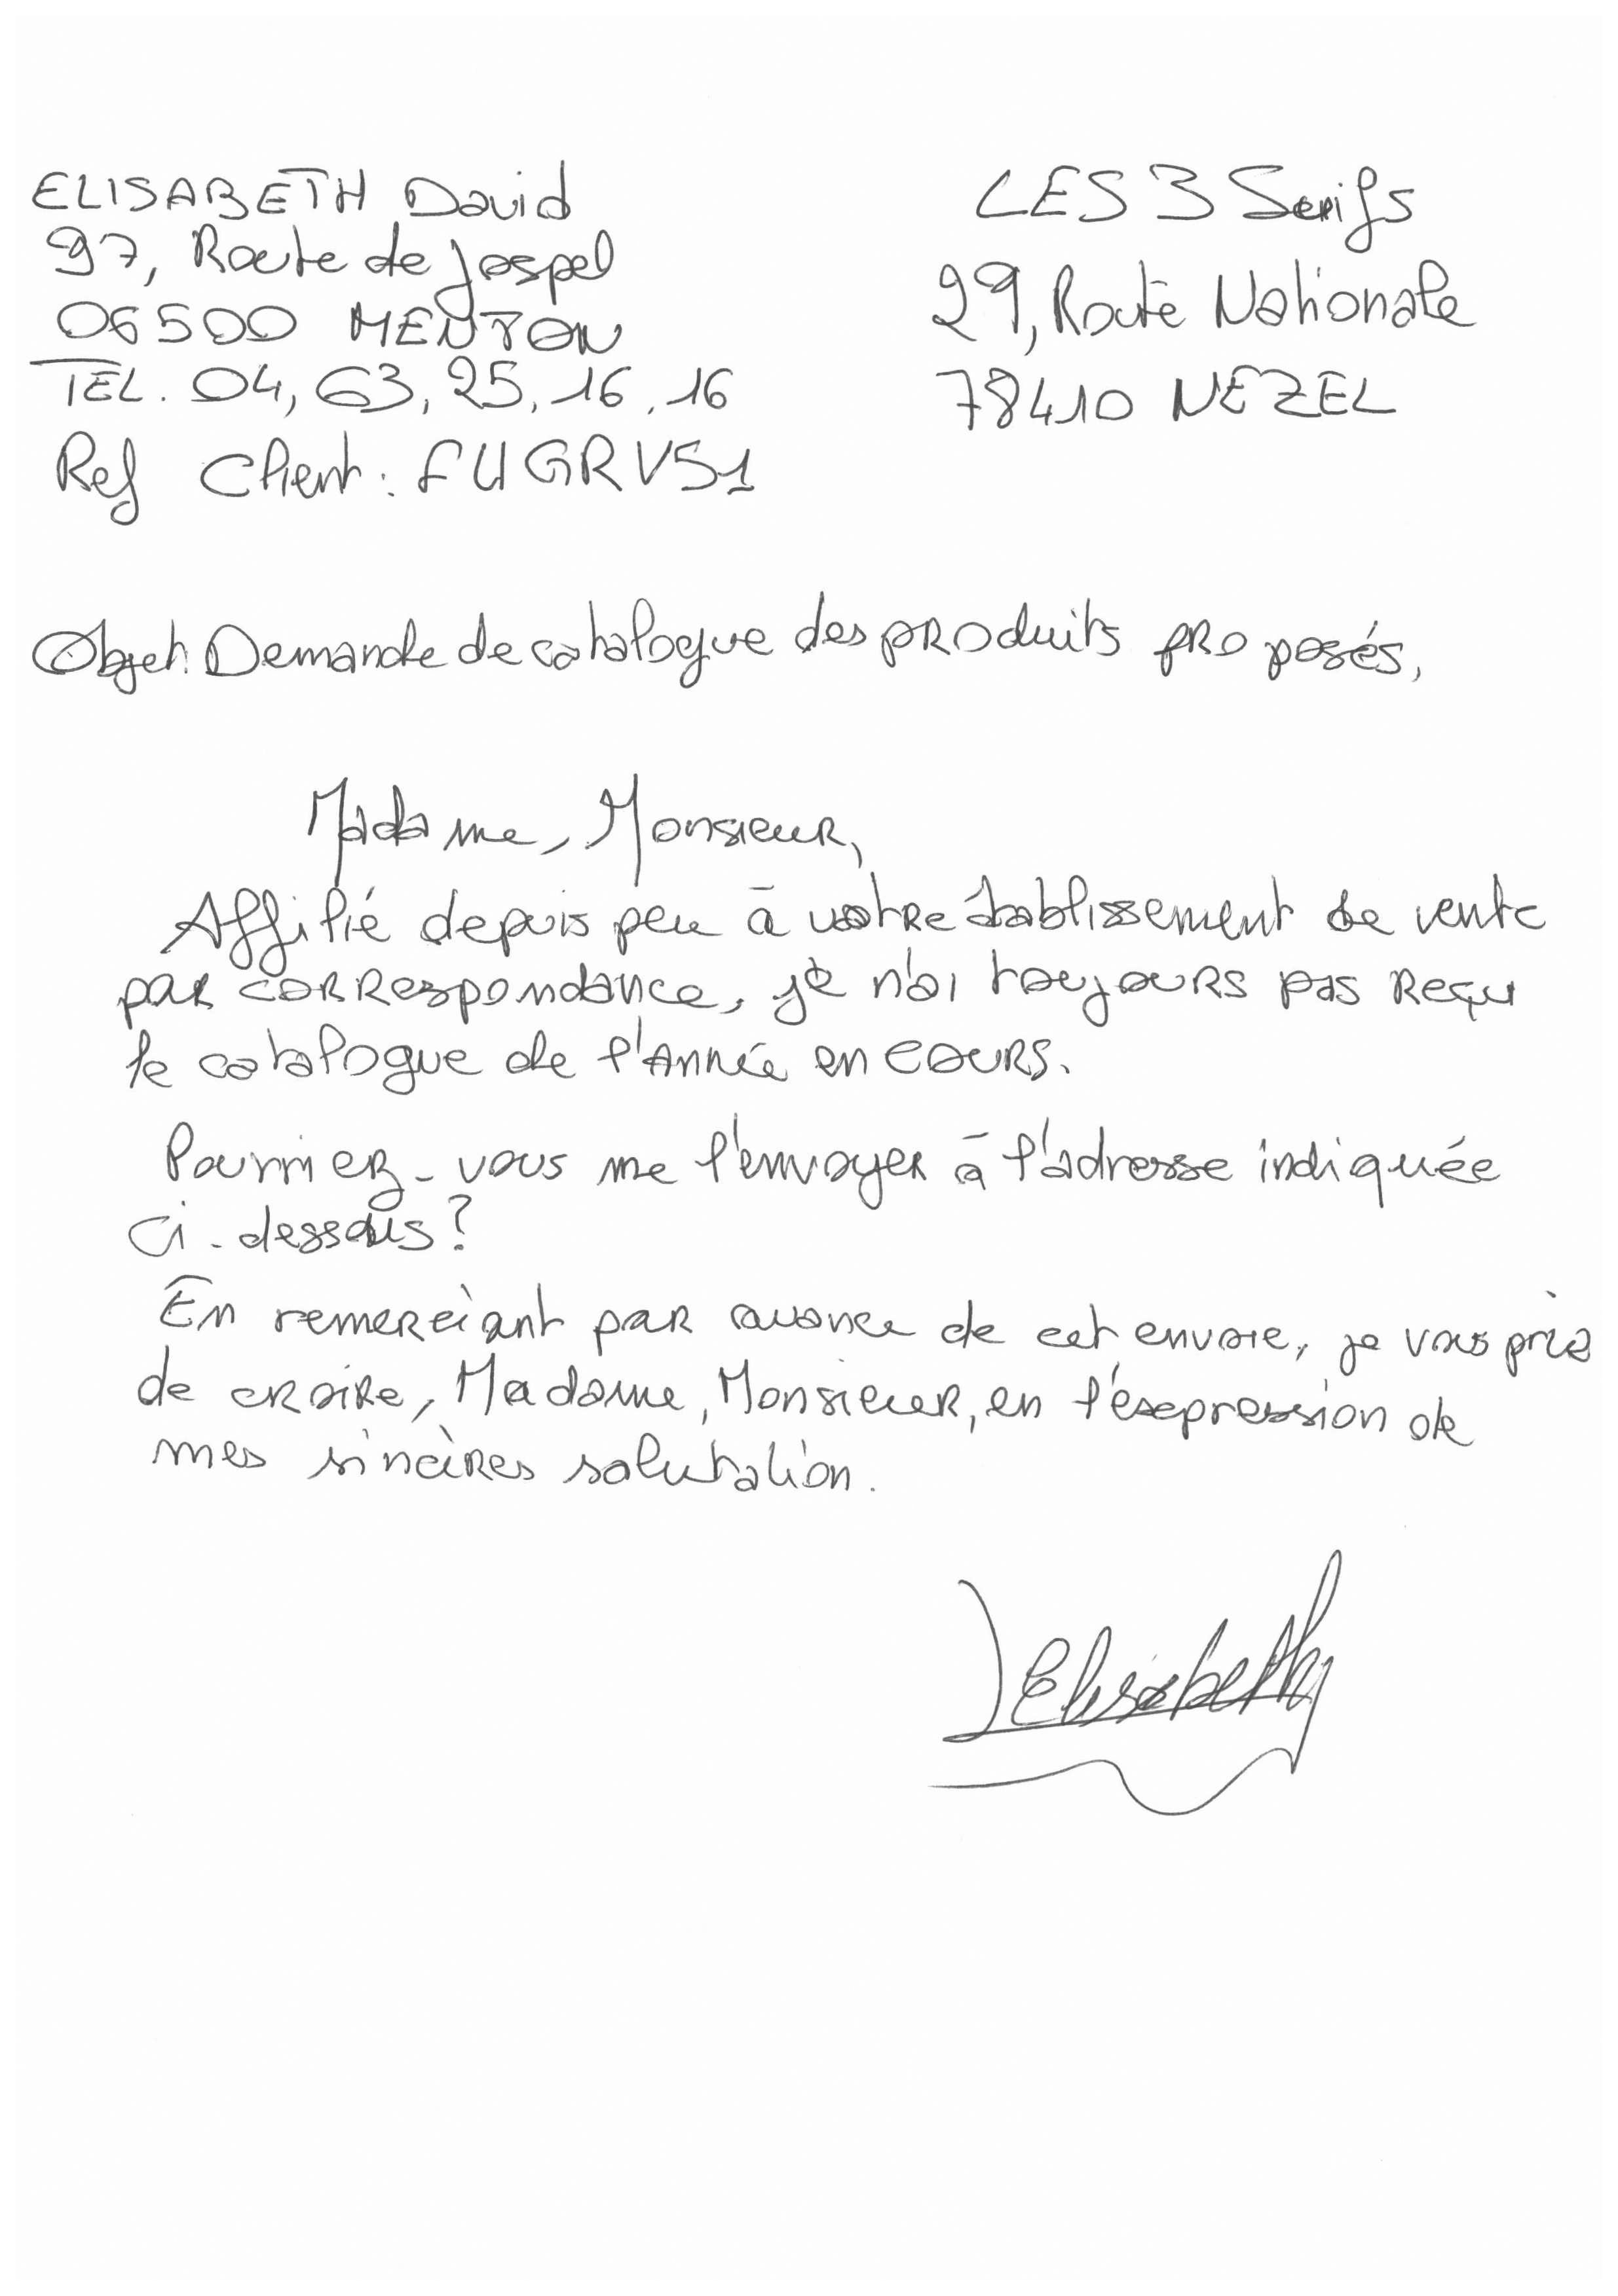 ELISABETH David
97, Route de Jospel
06500 MENTON
TEL. 04, 63, 25, 16, 16
Ref Client : FUGRV51
LES 3 Serifs
29, Route Nationale
78410 NEZEL
Objet: Demande de catalogue des produits proposés,
Madame, Monsieur,
Affilié depuis peu à votre établissement de vente
par correspondance, je n'ai toujours pas reçu
le catalogue de l'année en cours.
Pourriez-vous me l'envoyer à l'adresse indiquée
ci-dessous ?
En remerciant par avance de cet envoie, je vous prie
de croire, Madame, Monsieur, en l'expression de
mes sincères salutation.
Elisabeth